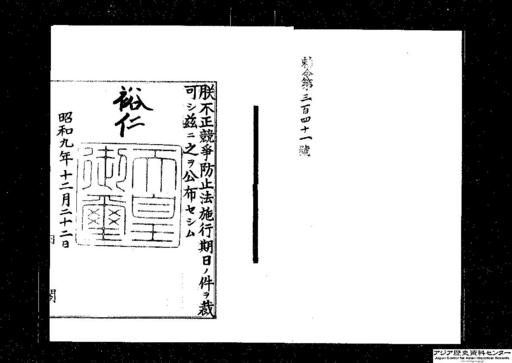 勅令第三百四十一號
朕不正競爭防止法施行期日ノ件ヲ裁
可シ茲ニ之ヲ公布セシム
裕仁
天皇御璽
昭和九年十二月二十二日
内閣
アジア歴史資料センター
Japan Center for Asian Historical Records